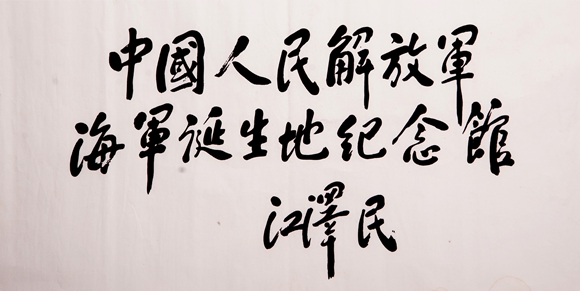 中國人民解放軍
海軍誕生地纪念館
江澤民